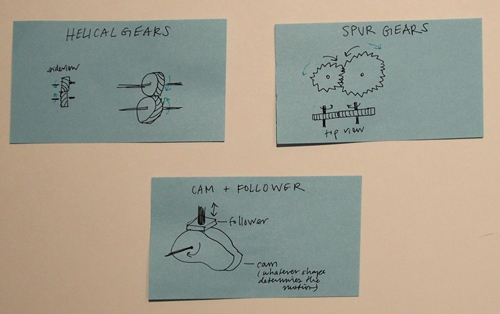 HELICAL GEARS
sideview
SPUR GEARS
top view
CAM + FOLLOWER
follower
cam
(whatever shape
determines the
motion)